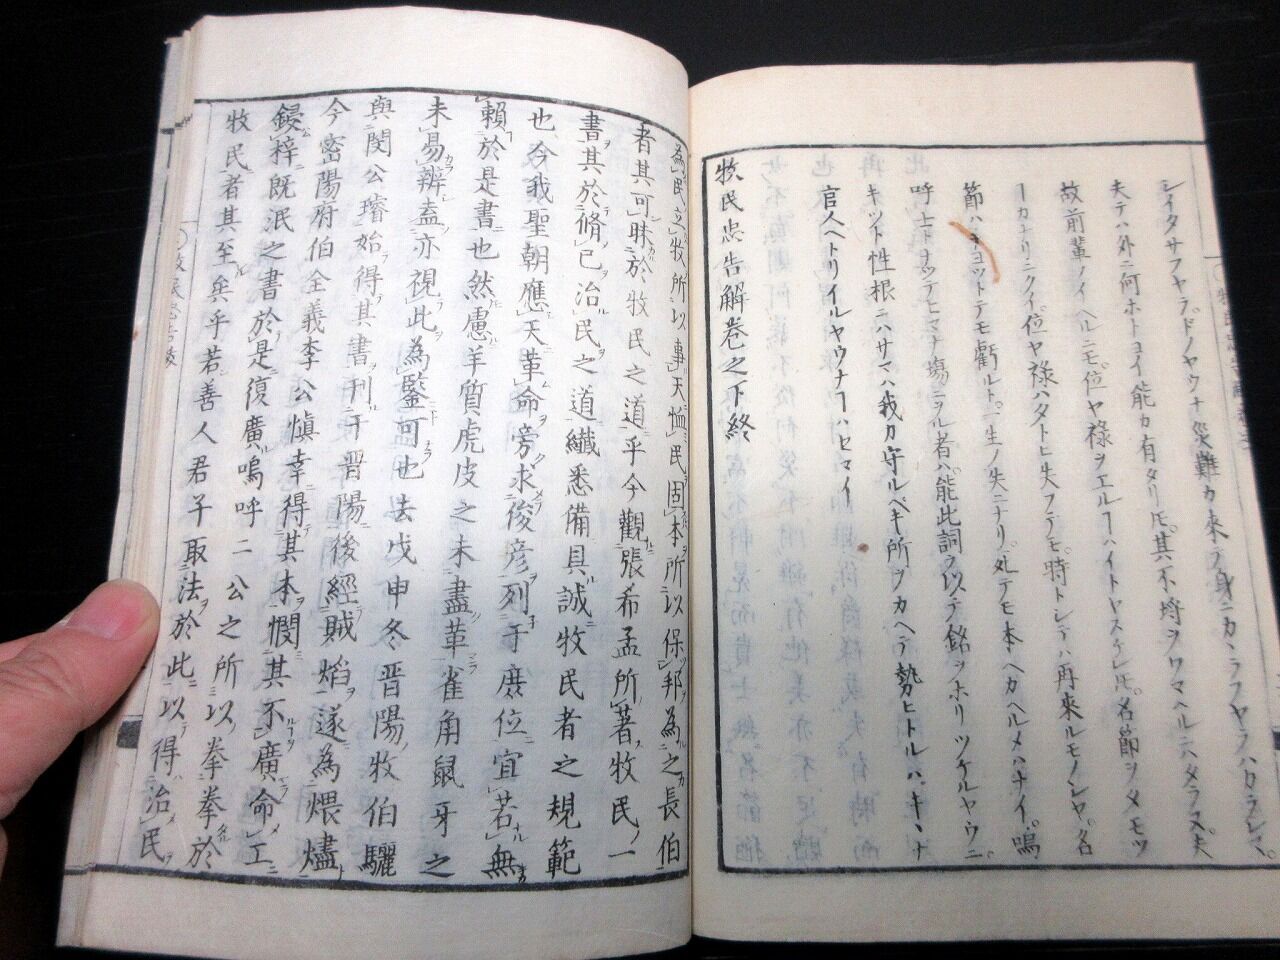 シイタサフヤラ。ドノヤウナ災難カ來ラ身ニカヽラフヤラハカラレヌ。
夫テハ外ニ何ホトヨイ能カ有タリ𪜈。其不埒ヲワマヘルニハタラヌ。夫
故前輩ノイヘルニモ。位ヤ祿ヲエルヿハイトヤスケレ𪜈。名節ヲタモツ
ヿカナリニクイ。位ヤ祿ハタトヒ失フテモ。時トシテハ再來ルモノシヤ。名
節ハチヨツトテモ虧ルト。一生ノ失ニナリ。死テモ本ヘカヘルメハナイ。嗚
呼士トナツテモマナ塲ニヲル者ハ。能此詞ヲ以テ銘ヲホリツケルヤウニ。
キツト性根ニハサマハ我カ守ルベキ所ヲカヘテ勢ヒトルハヽキヽナ
官人ヘトリイルヤウナヿハセマイ
牧民忠告解卷之下終
為民立牧所以事天恤民固本所以保邦為之長伯
者其可昧於牧民之道乎今觀張希孟所著牧民一
書其於脩已治民之道纎悉備具誠牧民者之規範
也今我聖朝應天革命旁求俊彦列于庶位宜若無
賴於是書也然慮羊質虎皮之未盡革雀角鼠牙之
未易辨盍亦視此為鑒可也去戊申冬晋陽牧伯驪
與閔公璿始得其書刊于晋陽後經賊焰遂為煨燼
今密陽府伯全義李公愼幸得其本憫其不廣命工
鋟梓既泯之書於是復廣嗚呼二公之所以拳拳於
牧民者其至矣乎若善人君子取法於此以得治民